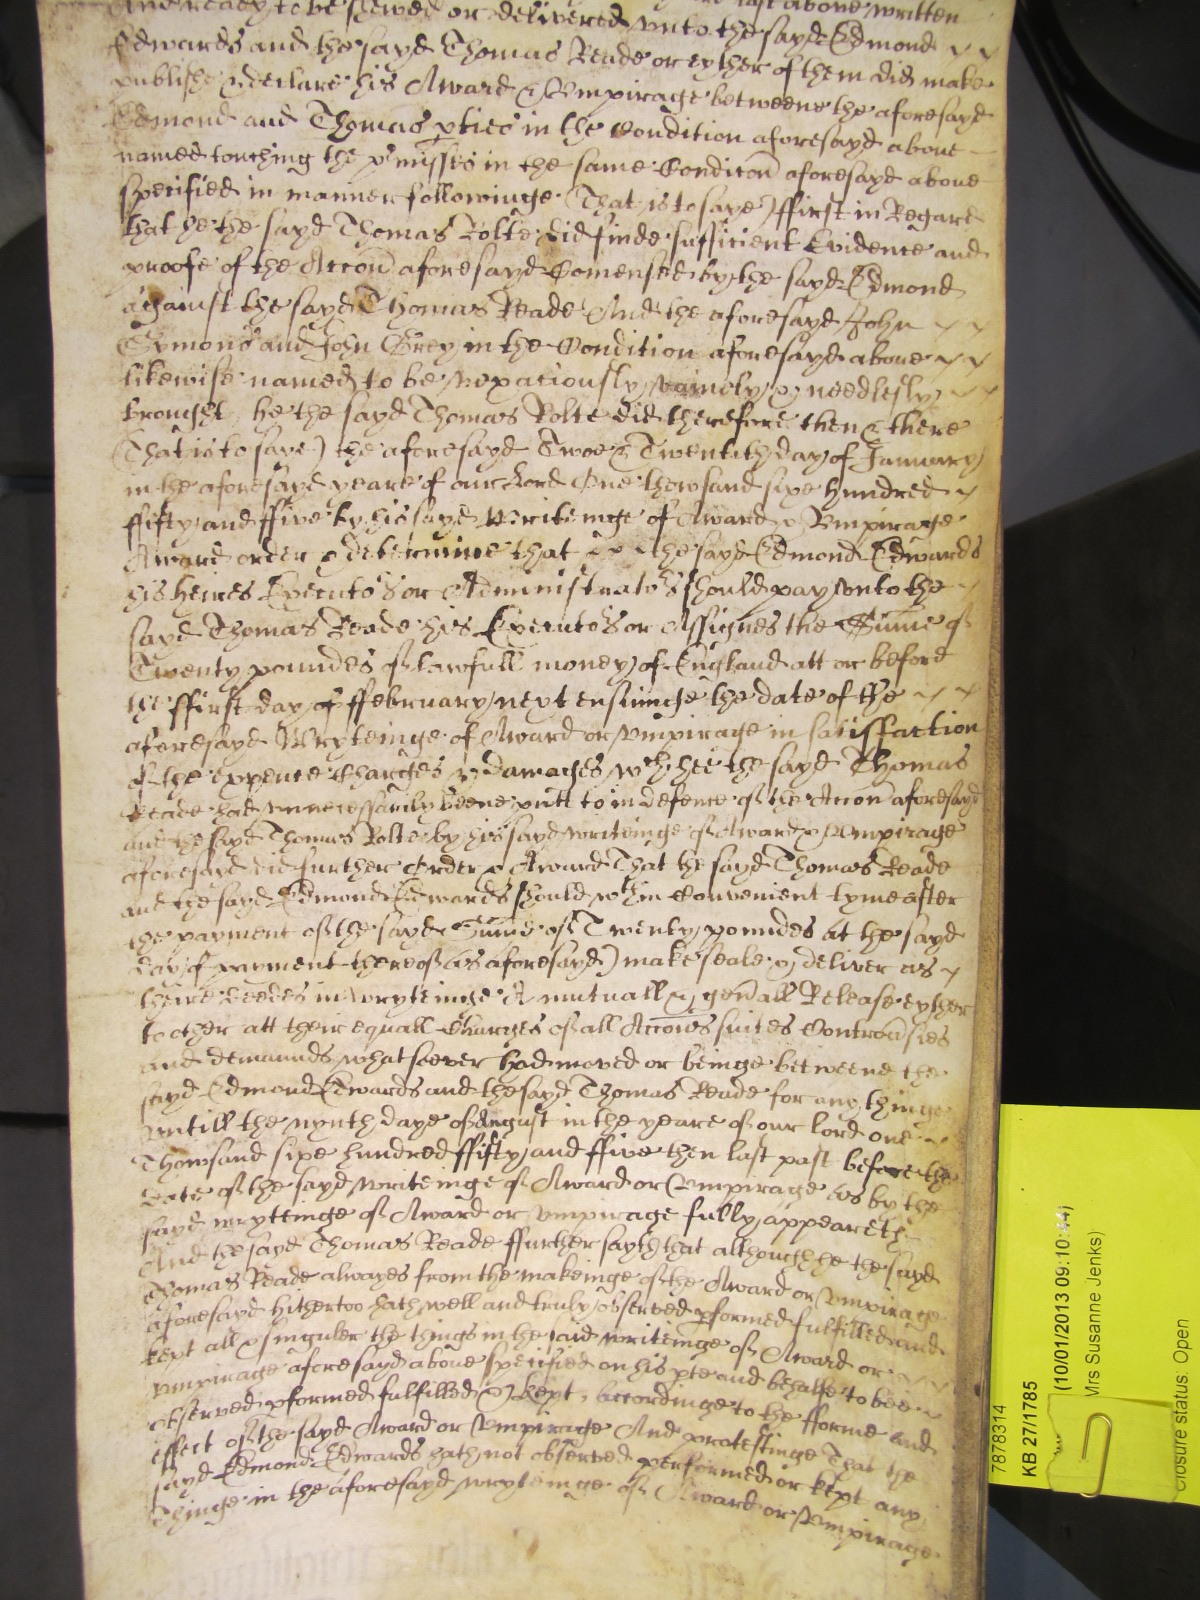 And ready to be shewed or delivered unto the sayd Edmond last above written
Edwards and the sayd Thomas Reade or eyther of them did make
publishe & declare his Award & Umpirage betweene the aforesayd
Edmond and Thomas pties in the Condition aforesayd above
named touching the pmisses in the same Condicon aforesayd above
specified in manner followinge (That is to saye) ffirst in Regard
that he the sayd Thomas Rolte did finde sufficient Evidence and
proofe of the Accon aforesayd Comensed by the sayd Edmond
against the sayd Thomas Reade And the aforesayd John
Symons and John Grey in the Condition aforesayd above
likewise named to be vexatiously vainely & needlesly
brought, he the sayd Thomas Rolte did therefore then & there
(That is to saye) the aforesayd Twoe & Twentith day of January
in the aforesayd yeare of our Lord One thowsand sixe hundred
ffifty and ffive by his sayd Writeinge of Award & Umpirage
Award order & determine that the sayd Edmond Edwards
his heires Executors or Administrators should pay unto the
sayd Thomas Reade his Executors or Assignes the Sume of
Twenty poundes of lawfull money of England att or before
the ffirst day of ffebruary next ensuinge the date of the
aforesayd Wryteinge of Award or Umpirage in satisfaction
of the expence Charges & damages wch hee the sayd Thomas
Reade had unnecessarily beene putt to in defence of the Accon aforesayd
and the sayd Thomas Rolte by his sayd writeinge of Award & Umpirage
aforesayd did further Order & Award That the sayd Thomas Reade
and the sayd Edmond Edwards should wthin Convenient tyme after
the payment of the sayd Sume of Twenty poundes at the sayd
day of payment thereof (as aforesayd) make seale & deliver as
theire deedes in wryteinge A mutuall & genall Release eyther
to other att their equall Charges of all Accons suites Controvsies
and demaunds whatsoever had moved or beinge betweene the
sayd Edmond Edwards and the sayd Thomas Reade for any thinge
untill the nynth daye of August in the yeare of our lord one
Thowsand sixe hundred ffifty and ffive then last past before the
date of the sayd writeinge of Award or Umpirage as by the
sayd wryteinge of Award or umpirage fully appeareth
And the sayd Thomas Reade ffurther sayth that although he the sayd
Thomas Reade alwayes from the makeinge of the Award or Umpirage
aforesayd hithertoo hath well and truly observed pformed fulfilled and
kept all & singuler the things in the said writeinge of Award or
umpirage aforesayd above specified on his pte and behalfe to bee
observed pformed fulfilled & kept, accordinge to the fforme and
effect of the sayd Award or Umpirage And protestinge That the
sayd Edmond Edwards hath not observed performed or kept any
thinge in the aforesayd wryteinge of Award or Umpirage
7878314
KB 27/1785
(10/01/2013 09:10:44)
Mrs Susanne Jenks)
Closure status: Open